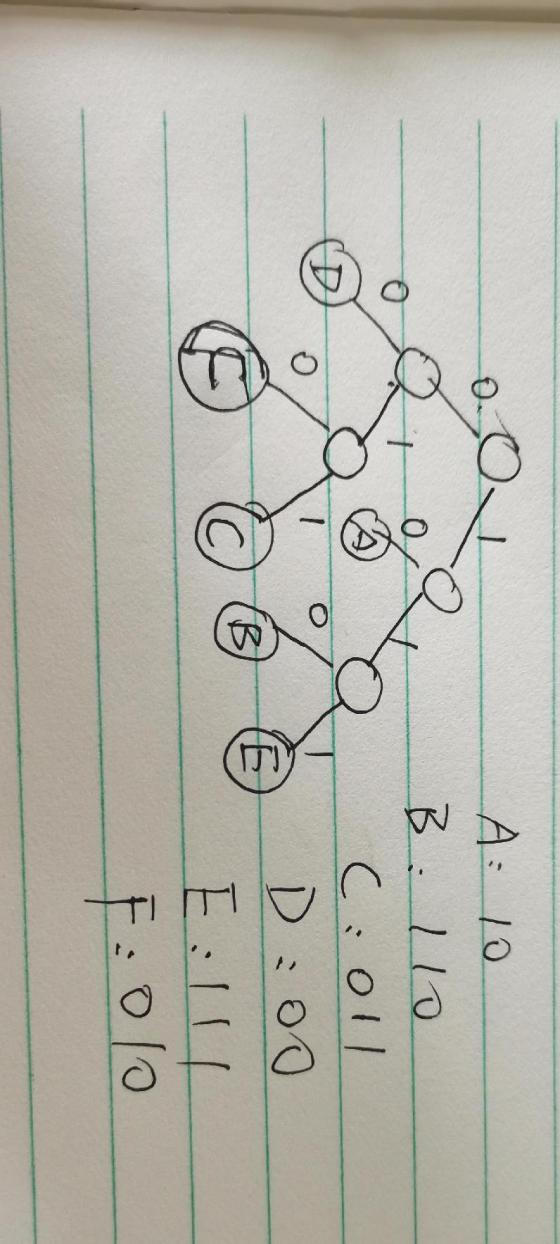 0 1
0 1 0 1
D A
0 1 0 1
F C B E
A: 10
B: 110
C: 011
D: 00
E: 111
F: 010